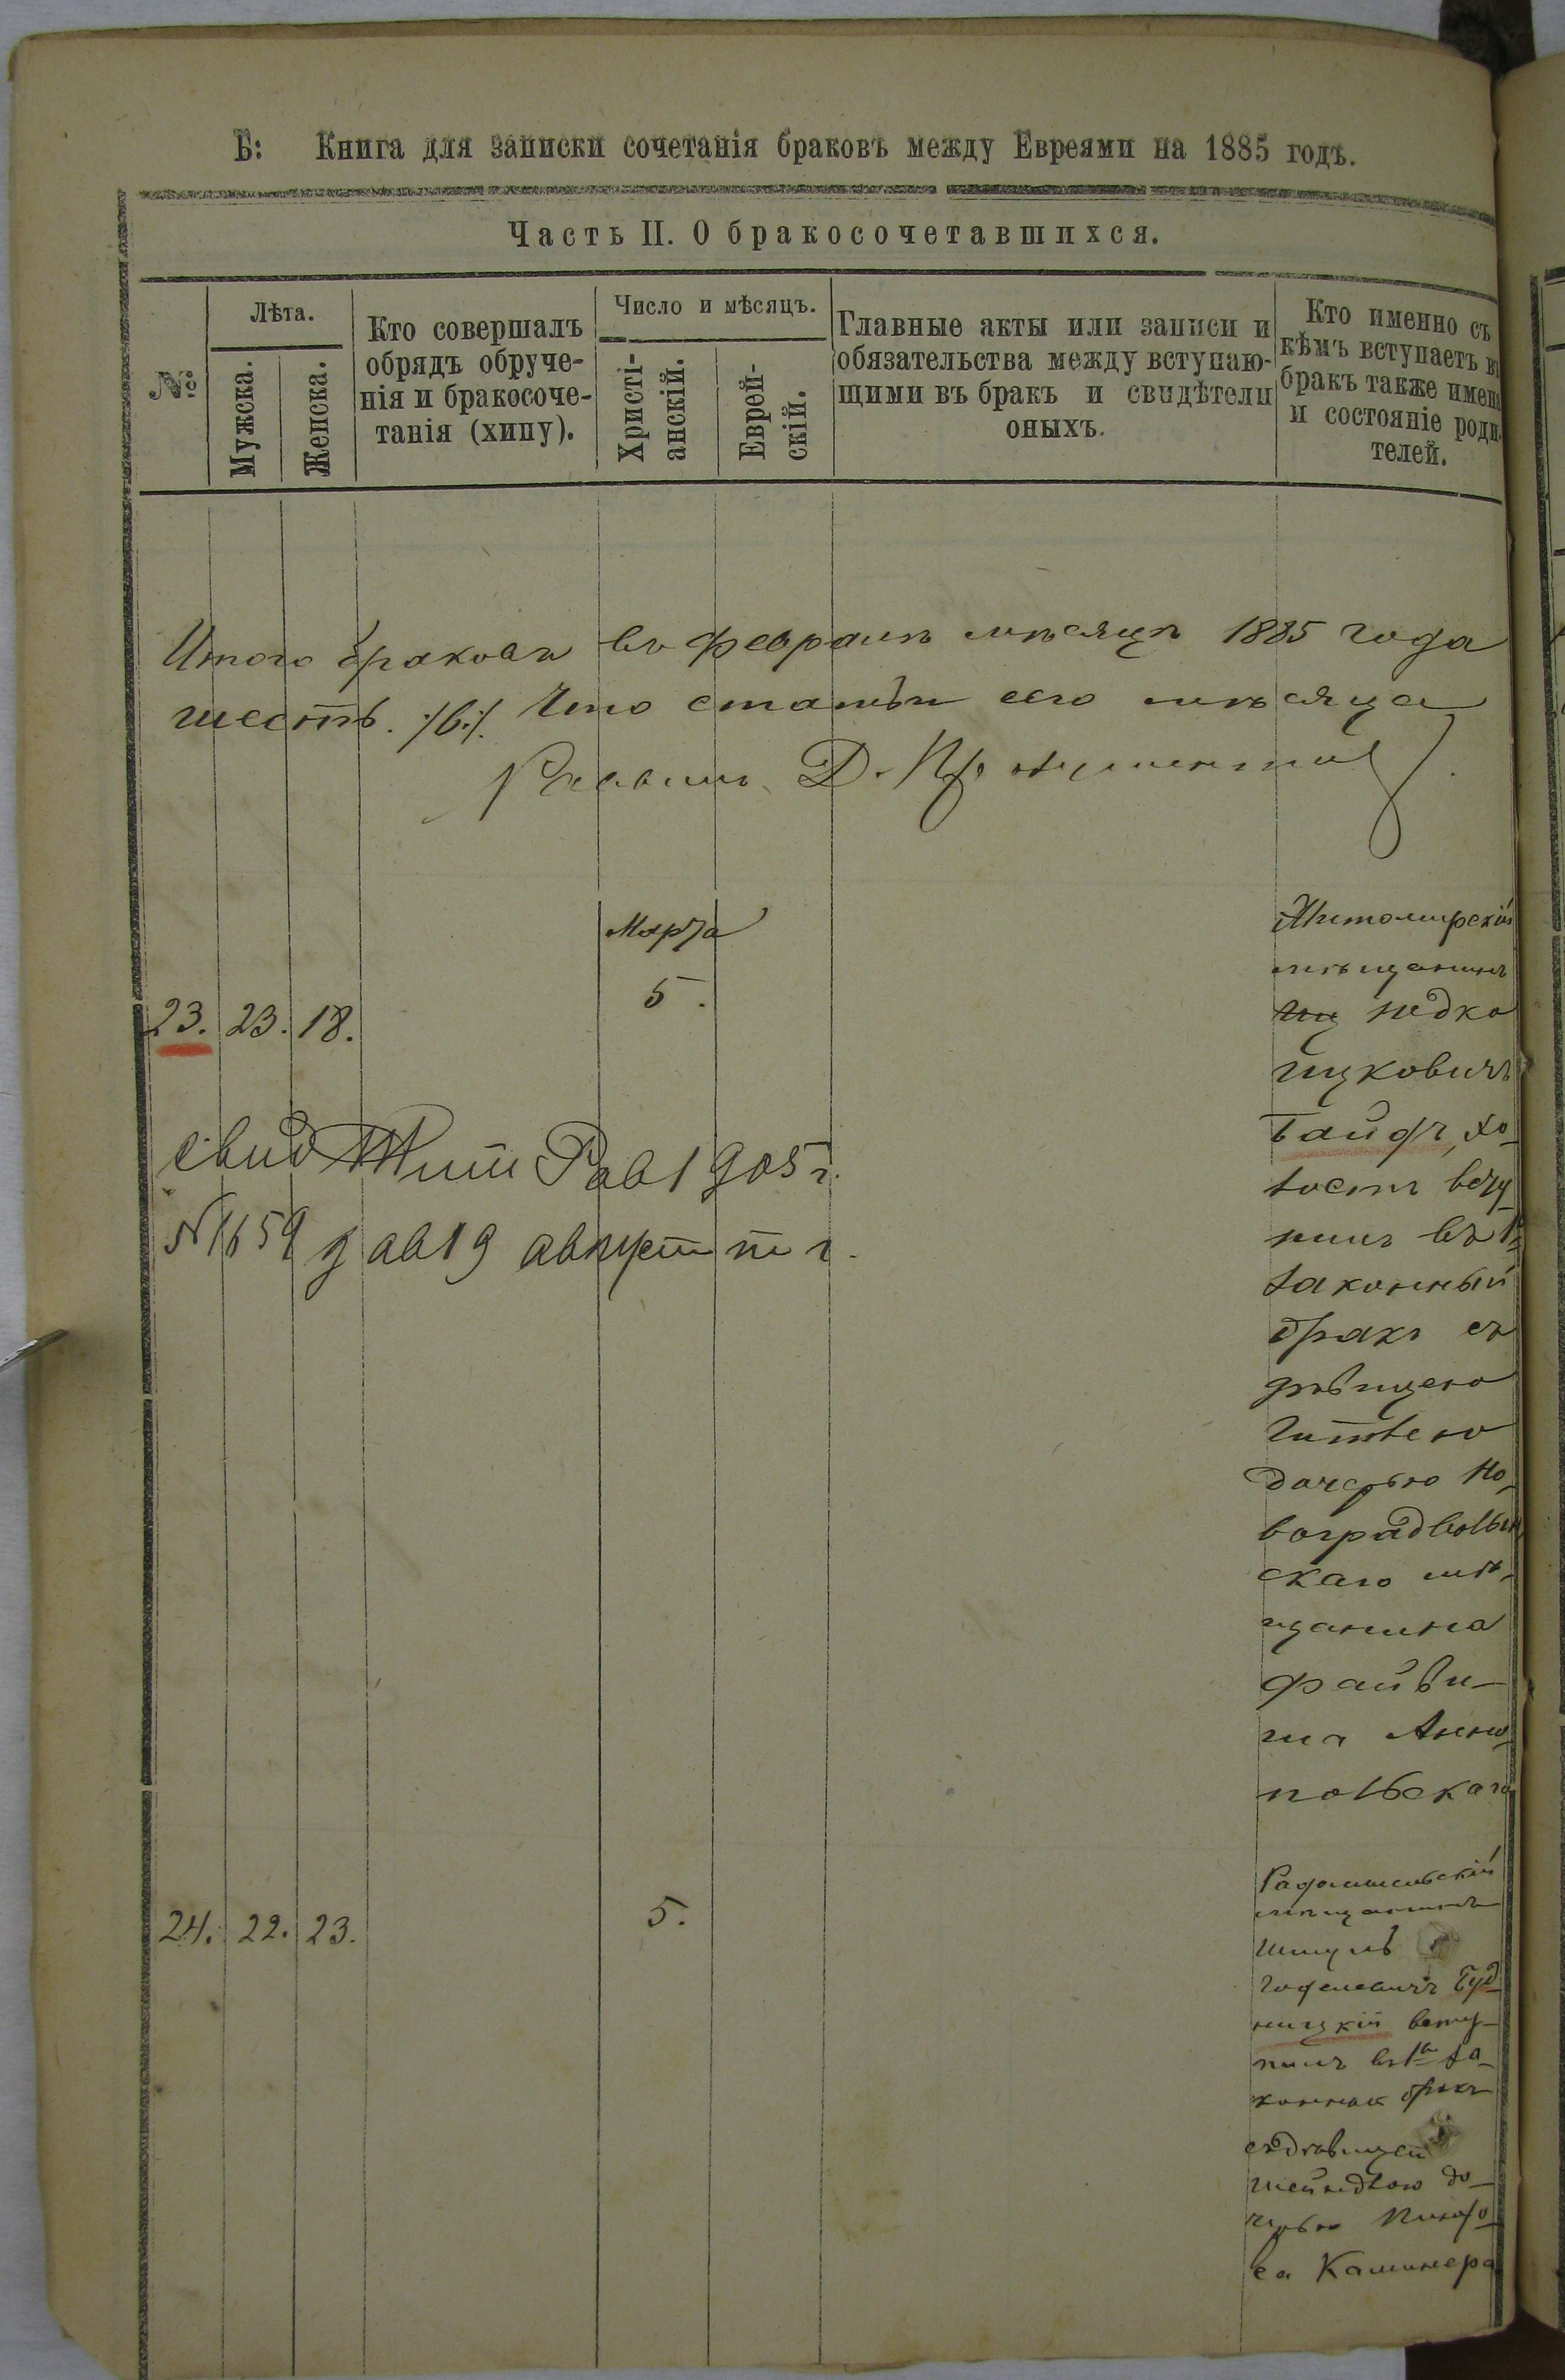 Б: Книга для записки сочетанія браковъ между Евреями на 1885 годъ.
Часть II. О бракосочетавшихся.
№
Лѣта.
Мужска.
Женска.
Кто совершалъ
обрядъ обруче-
нія и бракосоче-
танія (хипу).
Число и мѣсяцъ.
Христі-
анскій.
Еврей-
скій.
Главные акты или записи и
обязательства между вступаю-
щими въ бракъ и свидѣтели
оныхъ.
Кто именно съ
кѣмъ вступаетъ въ
бракъ также имена
и состояніе роди-
телей.
Итого браковъ въ февралѣ мѣсяцѣ 1885 года
шесть. /6/. Что статьи сего мѣсяца
Раввинъ Д.
Марта
23. 23. 18.
5.
Житомирскій
мѣщанинъ
Ицковичъ
хо-
лостъ всту
пилъ въ 1й
законный
бракъ съ
дѣвицею
Гитлею
дочерью Но-
воградволын
скаго мѣ-
щанина
Файви-
ша Анно-
польскаго
Свид Жит Рав 1905 г.
№ 1659 д ав 19 август т г.
24. 22. 23.
5.
Радомысльскій
мѣщанинъ
Шмуль
Буд-
ницкій всту-
пилъ въ 1й за-
бракъ
съ дѣвицей
Шейндлою до-
черью
Каминера